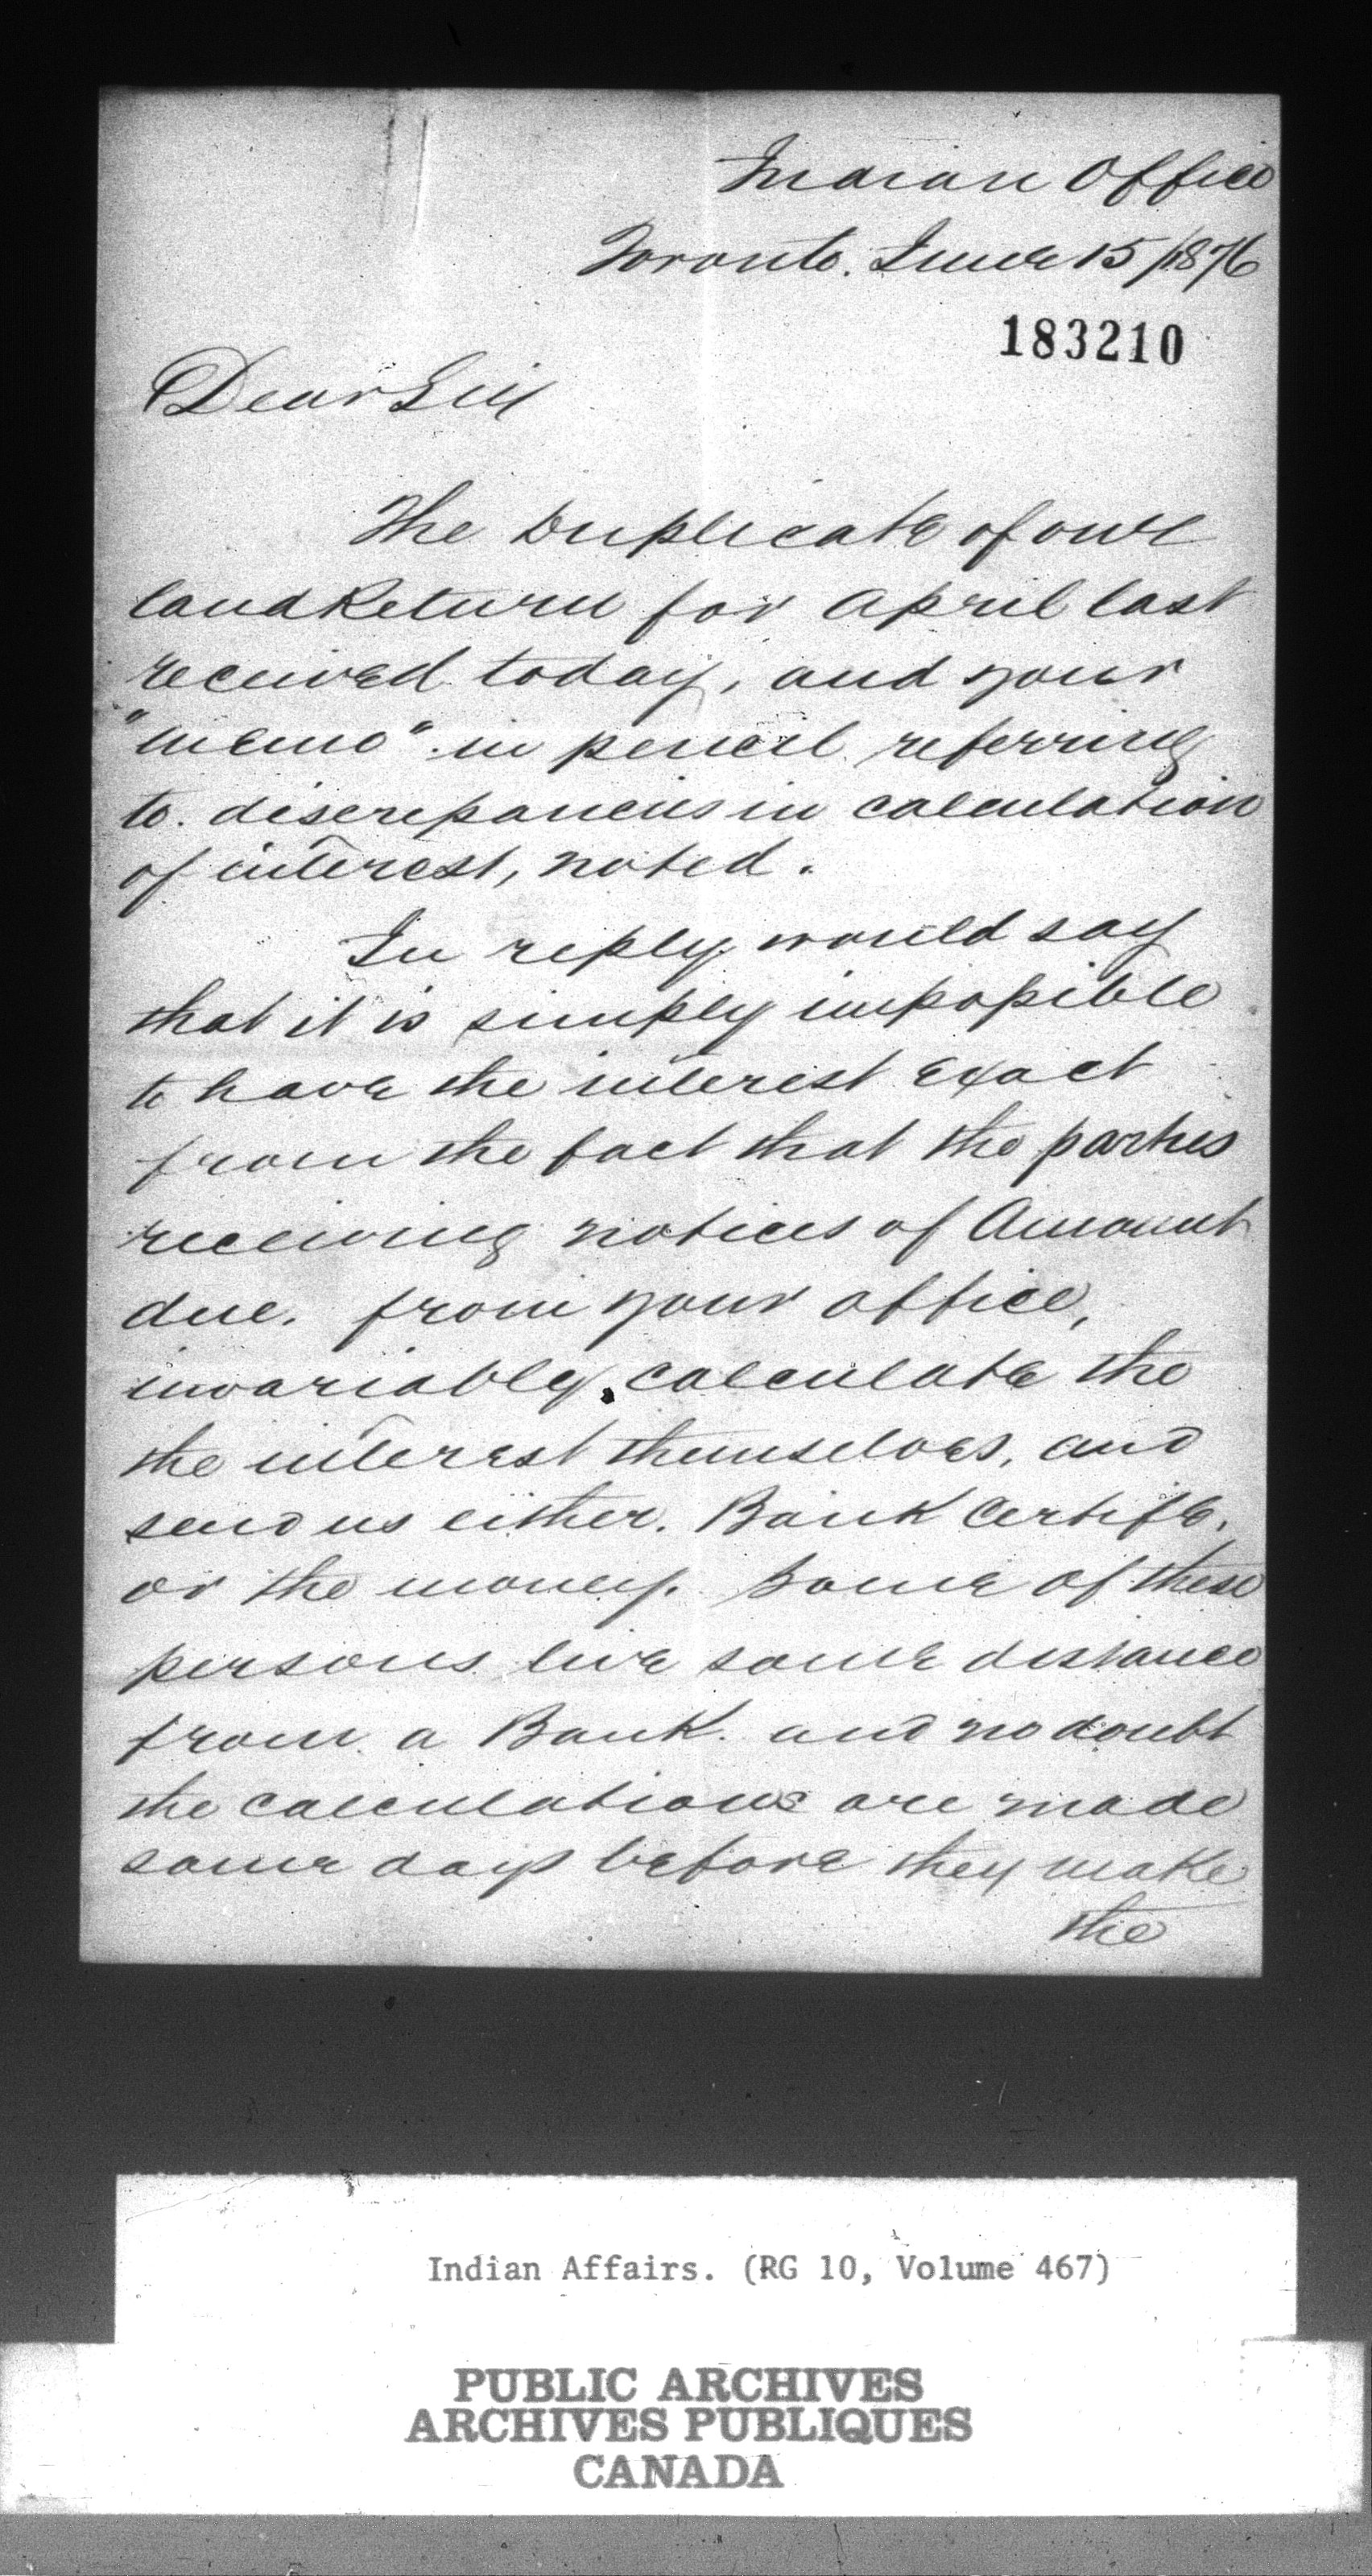 Indian Office
Toronto. June 15/1876
183210
Dear Sir
The Duplicate of our
land Return for April last
received today, and your
"memo" in pencil referring
to. discrepancies in calculation
of interest, noted.
In reply would say
that it is simply impossible
to have the interest exact
from the fact that the parties
receiving notices of Amount
due. from your office,
invariably, calculate the
the interest themselves, and
send us either. Bank Certife.
or the money. Some of these
persons live some distance
from a Bank. and no doubt
the calculations are made
some days before they make
the
Indian Affairs. (RG 10, Volume 467)
PUBLIC ARCHIVES
ARCHIVES PUBLIQUES
CANADA